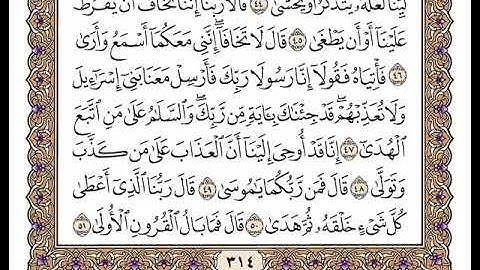 لَّيِّنًا لَّعَلَّهُۥ يَتَذَكَّرُ أَوْ يَخْشَىٰ ٤٤ قَالَا رَبَّنَآ إِنَّنَا نَخَافُ أَن يَفْرُطَ
عَلَيْنَآ أَوْ أَن يَطْغَىٰ ٤٥ قَالَ لَا تَخَافَآ إِنَّنِي مَعَكُمَآ أَسْمَعُ وَأَرَىٰ
٤٦ فَأْتِيَاهُ فَقُولَآ إِنَّا رَسُولَا رَبِّكَ فَأَرْسِلْ مَعَنَا بَنِيٓ إِسْرَٰٓءِيلَ
وَلَا تُعَذِّبْهُمْ ۖ قَدْ جِئْنَٰكَ بِـَٔايَةٍ مِّن رَّبِّكَ ۖ وَٱلسَّلَٰمُ عَلَىٰ مَنِ ٱتَّبَعَ
ٱلْهُدَىٰٓ ٤٧ إِنَّا قَدْ أُوحِيَ إِلَيْنَآ أَنَّ ٱلْعَذَابَ عَلَىٰ مَن كَذَّبَ
وَتَوَلَّىٰ ٤٨ قَالَ فَمَن رَّبُّكُمَا يَٰمُوسَىٰ ٤٩ قَالَ رَبُّنَا ٱلَّذِيٓ أَعْطَىٰ
كُلَّ شَيْءٍ خَلْقَهُۥ ثُمَّ هَدَىٰ ٥٠ قَالَ فَمَا بَالُ ٱلْقُرُونِ ٱلْأُولَىٰ ٥١
٣١٤